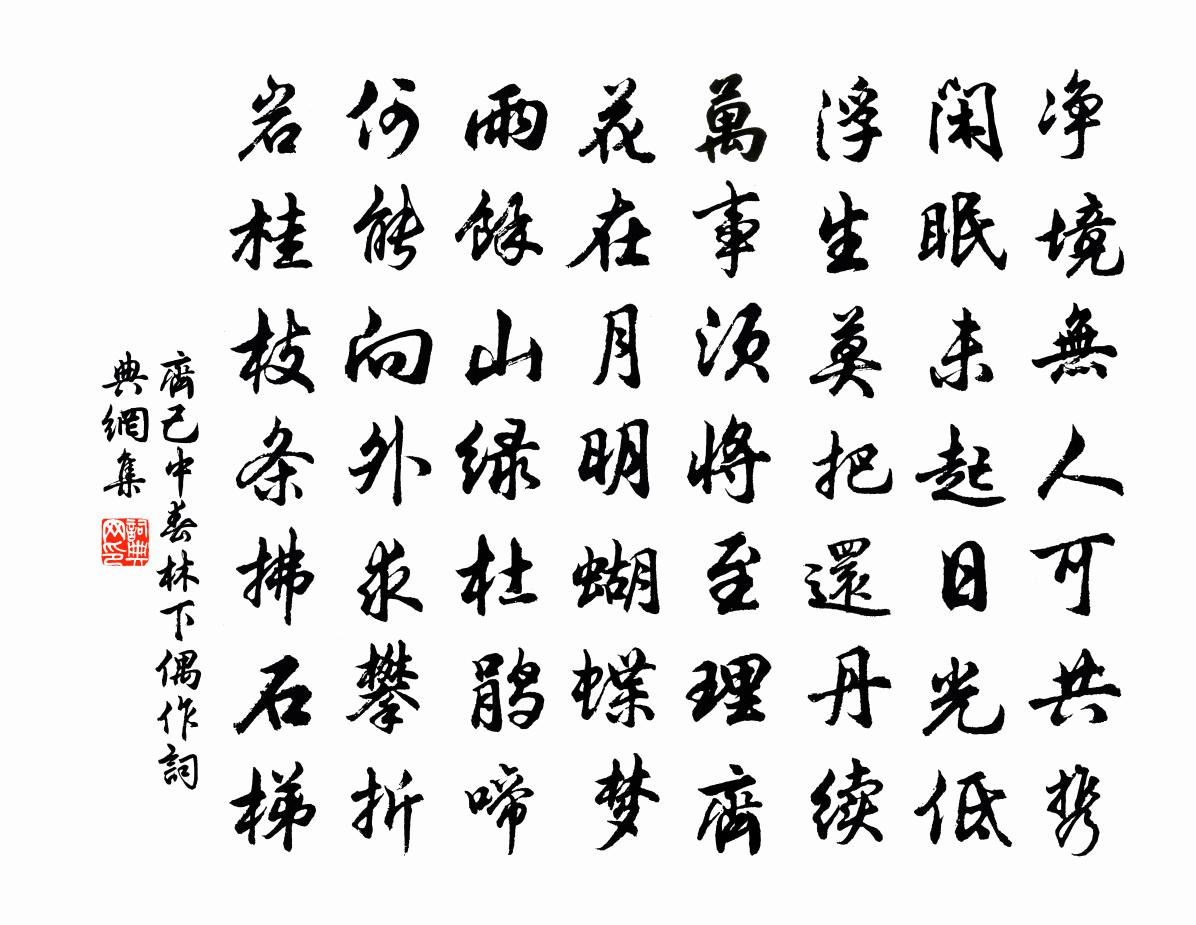 净境無人可共携
閑眠未起日光低
浮生莫把還丹續
萬事須將至理齊
花在月明蝴蝶梦
雨餘山緑杜鹃啼
何能向外求攀折
岩桂枝条拂石梯
齊己中春林下偶作詞
典網集
詞典
网印